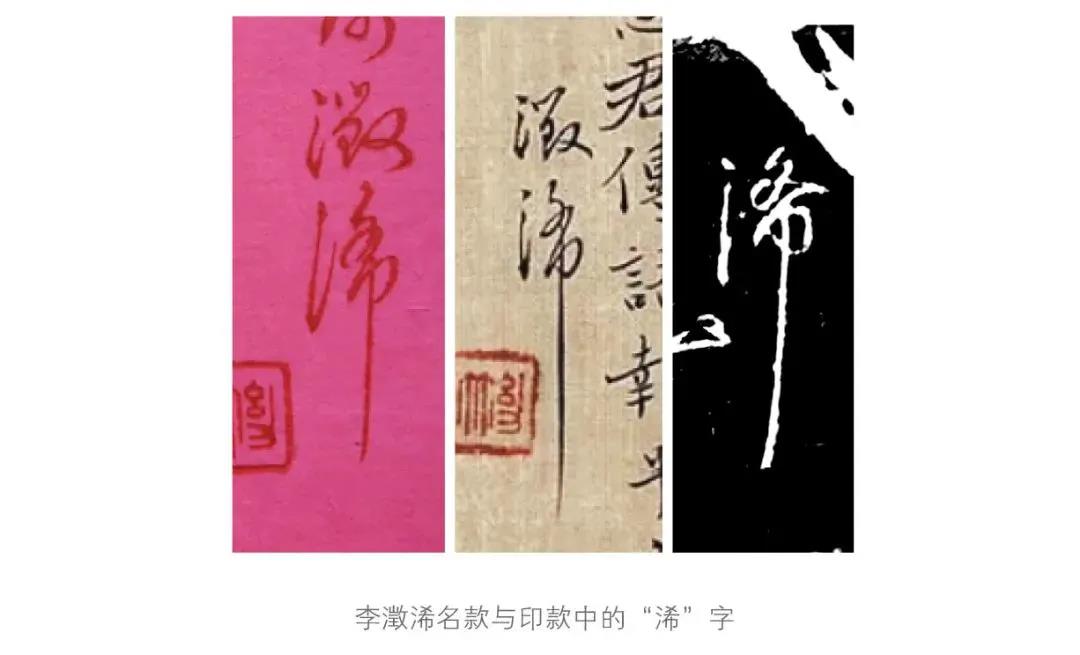 澂浠
君傳
幸
澂浠
浠
李澂浠名款与印款中的“浠”字